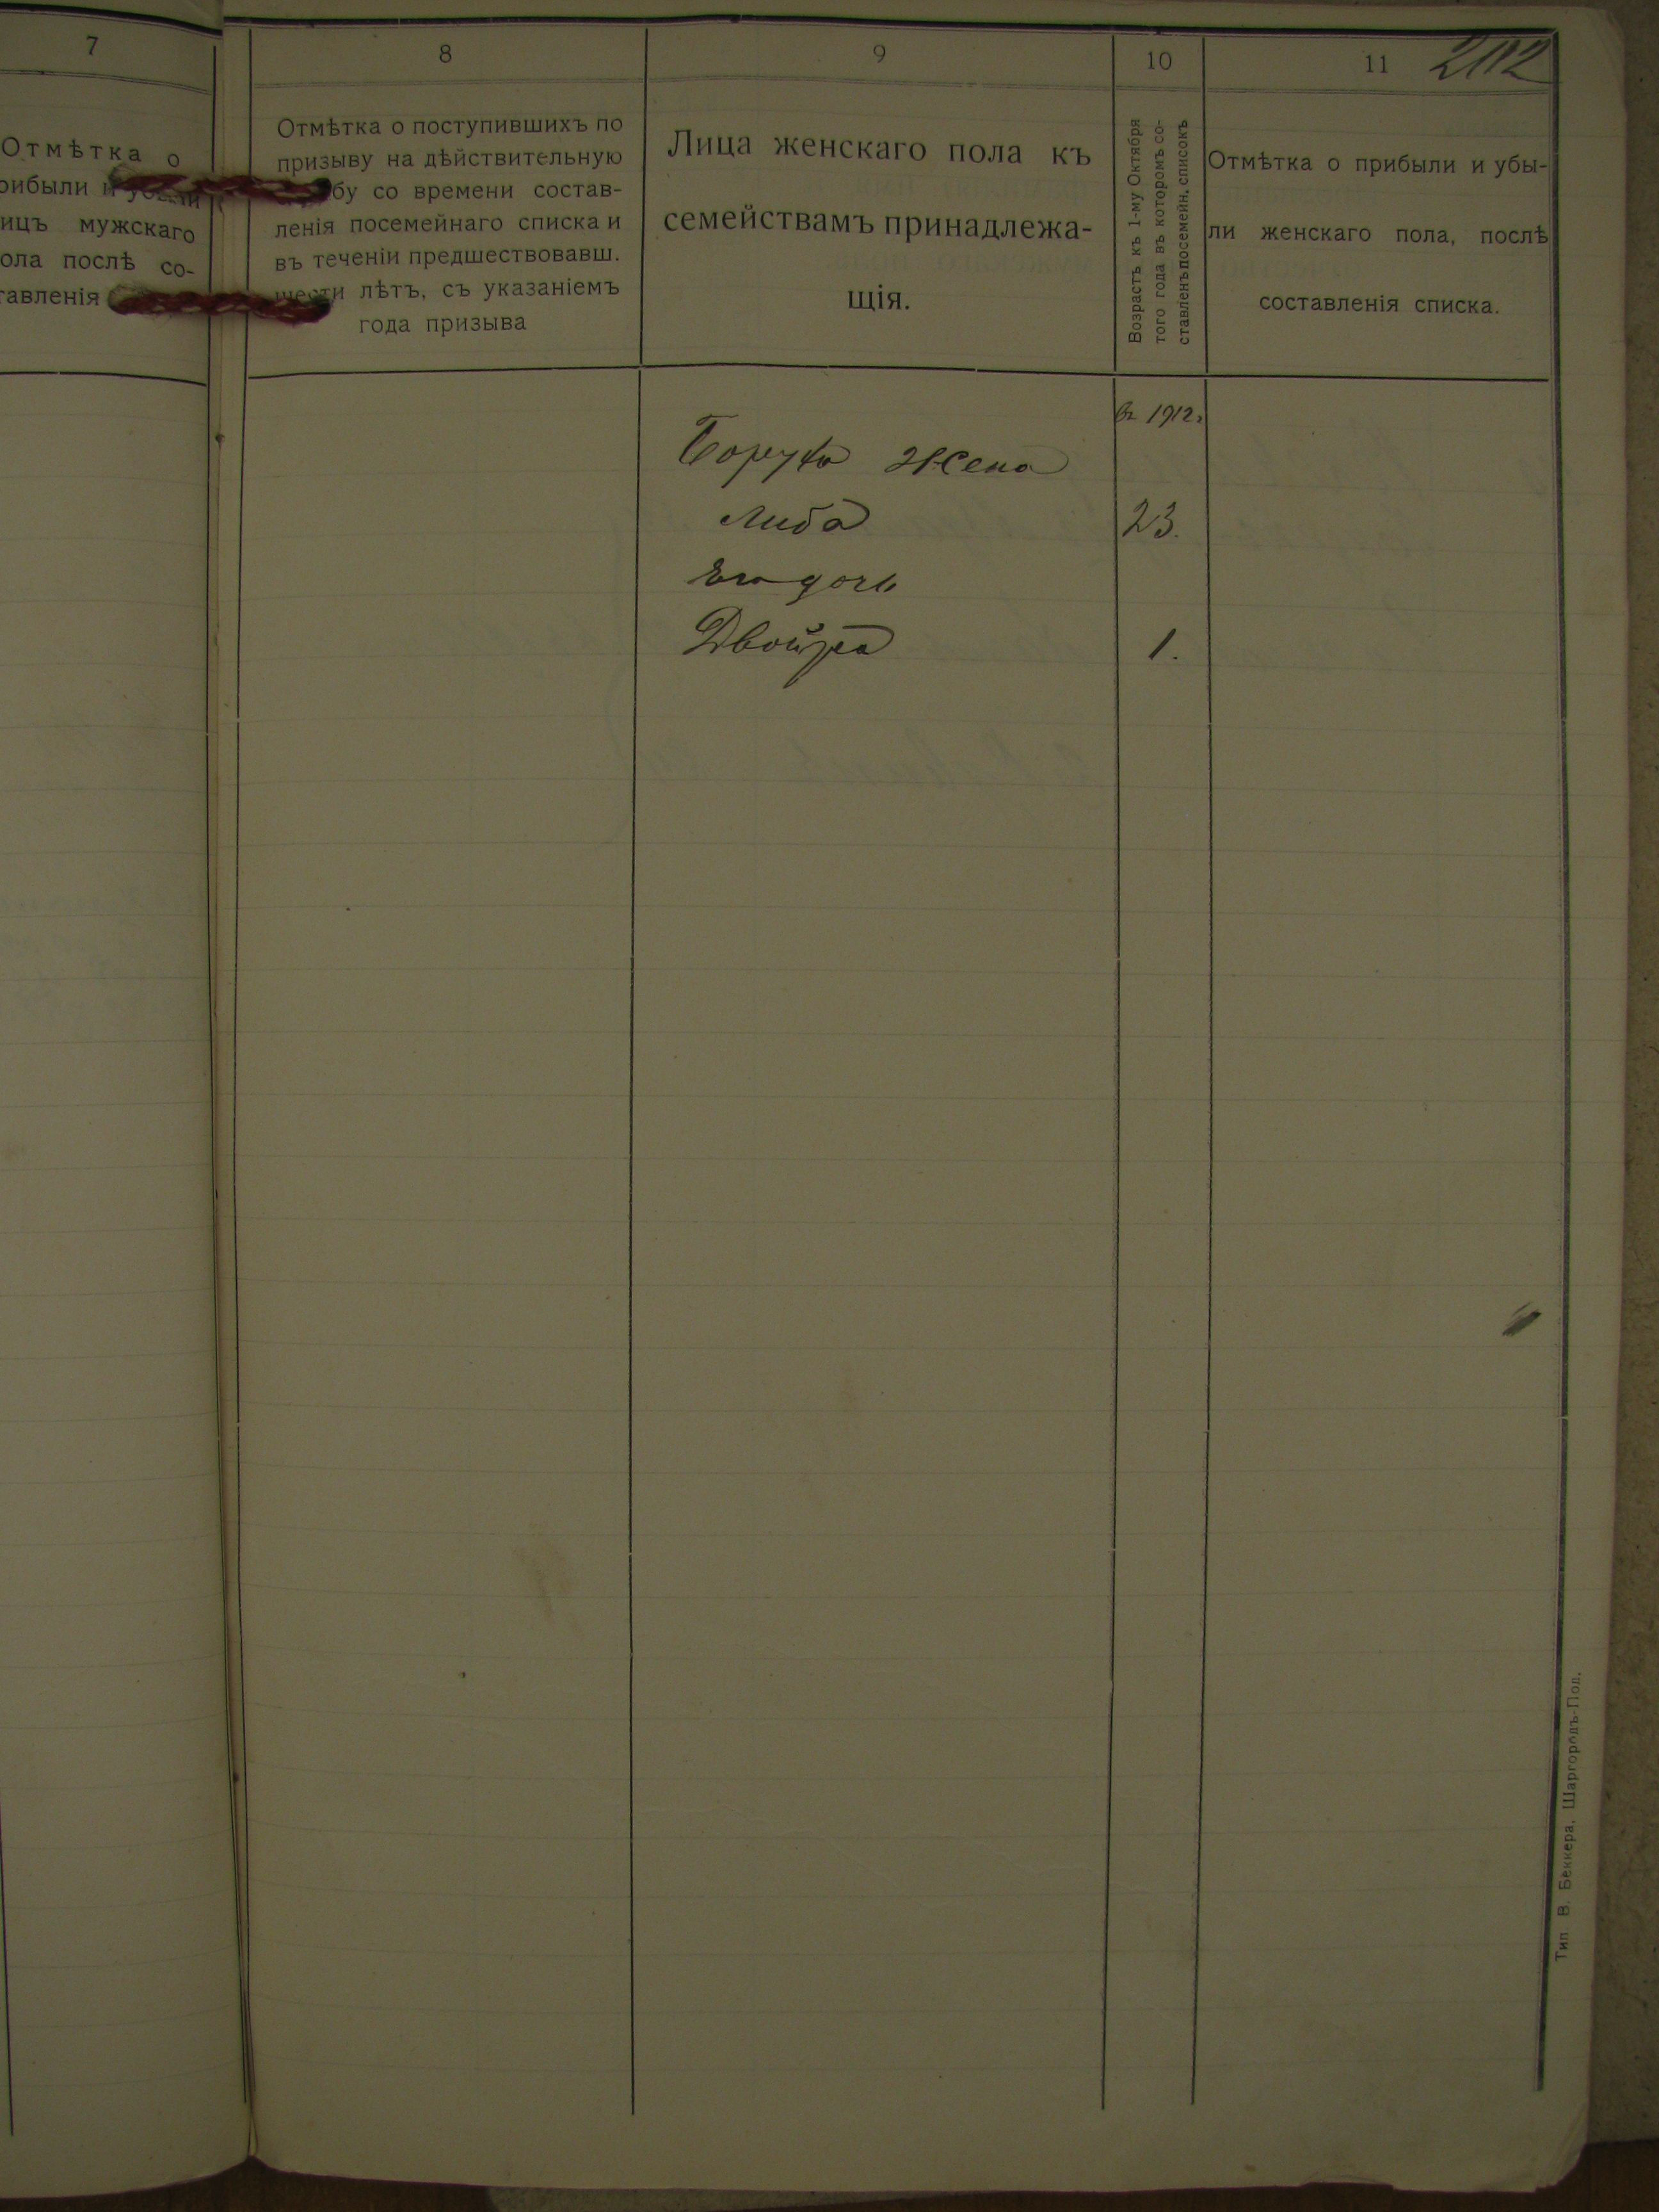 7
Отмѣтка о
рибыли и убыли
ицъ мужскаго
ола послѣ со-
тавленія
8
Отмѣтка о поступившихъ по
призыву на дѣйствительную
бу со времени состав-
ленія посемейнаго списка и
въ теченіи предшествовавш.
шести лѣтъ, съ указаніемъ
года призыва
9
Лица женскаго пола къ
семействамъ принадлежа-
щія.
10
Возрастъ къ 1-му Октября
того года въ которомъ со-
ставленъ посемейн. списокъ
11
Отмѣтка о прибыли и убы-
ли женскаго пола, послѣ
составленія списка.
въ 1912г
Боруха Жена
Либа 23.
Его дочь
Двойра 1.
Тип. В. Беккера, Шаргородъ-Под.